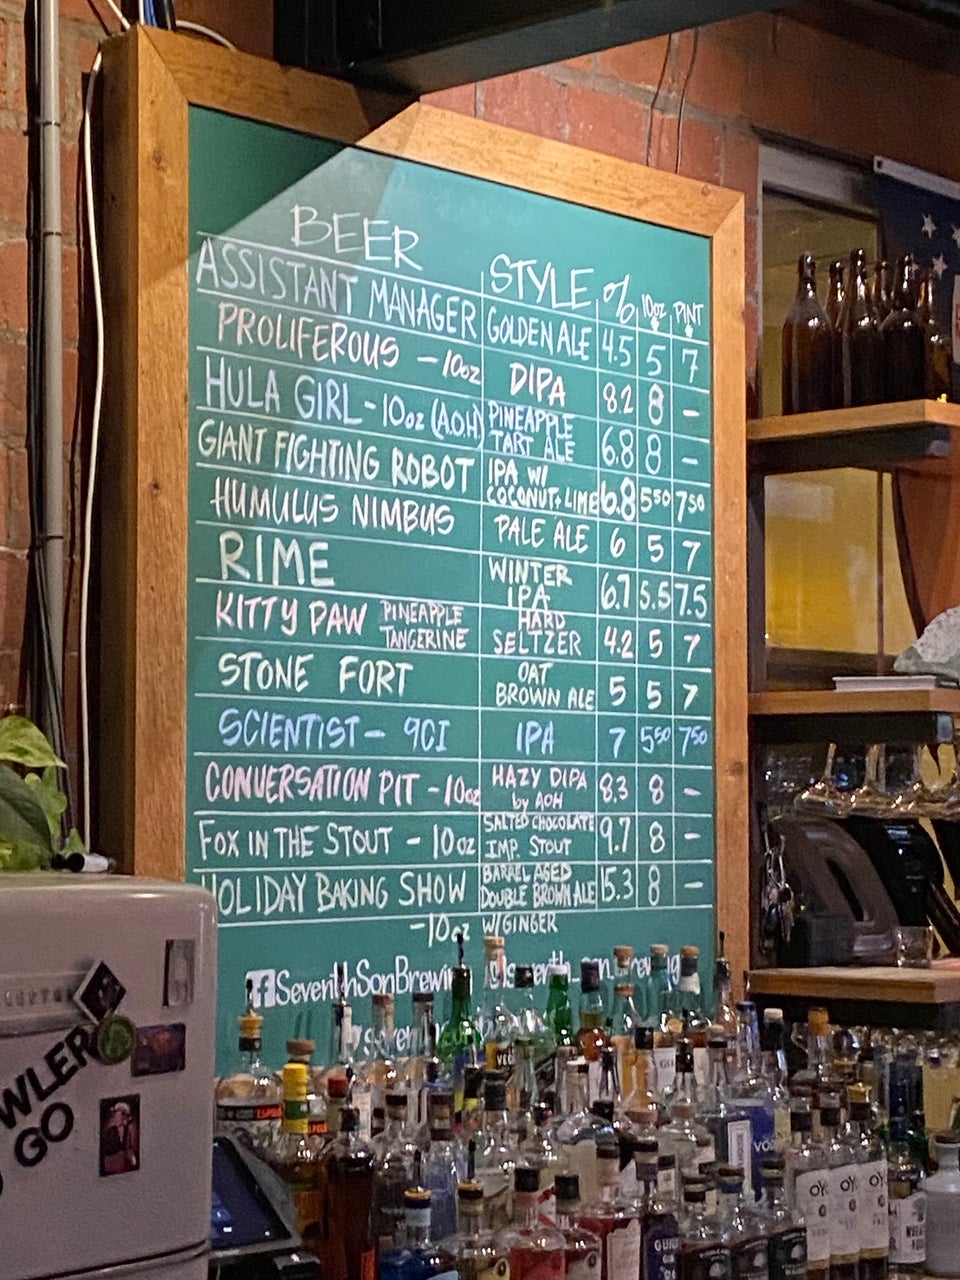 BEER STYLE % 10oz PINT
ASSISTANT MANAGER GOLDEN ALE 4.5 5 7
PROLIFEROUS - 10oz DIPA 8.2 8 -
HULA GIRL - 10oz (AOH) PINEAPPLE TART ALE 6.8 8 -
GIANT FIGHTING ROBOT IPA W/ COCONUT + LIME 6.8 550 750
HUMULUS NIMBUS PALE ALE 6 5 7
RIME WINTER IPA 6.7 5.5 7.5
KITTY PAW PINEAPPLE TANGERINE HARD SELTZER 4.2 5 7
STONE FORT OAT BROWN ALE 5 5 7
SCIENTIST - 9CI IPA 7 550 750
CONVERSATION PIT - 10oz HAZY DIPA by AOH 8.3 8 -
FOX IN THE STOUT - 10oz SALTED CHOCOLATE IMP. STOUT 9.7 8 -
HOLIDAY BAKING SHOW BARREL AGED DOUBLE BROWN ALE 15.3 8 -
- 10oz W/ GINGER
SeventhSonBrewin
WLER
GO
OYO OYO OYO